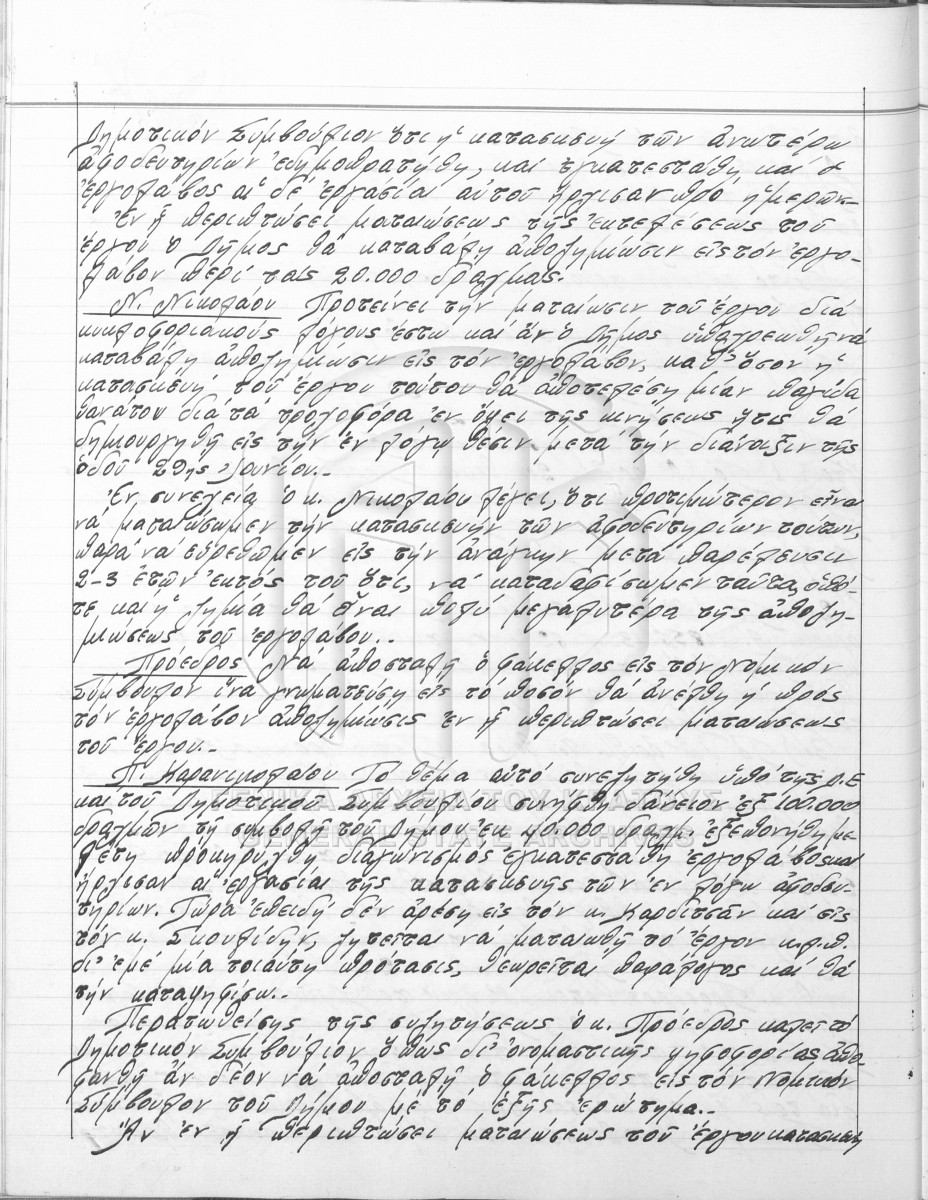 Δημοτικόν Συμβούλιον ὅτι ἡ κατασκευή τῶν ἀνωτέρω
ἀφοδευτηρίων ἐδημοπρατήθη, καί ἐγκατεστάθη καί ὁ
ἐργολάβος αἱ δέ ἐργασίαι αὐτοῦ ἤρχισαν πρό ἡμερῶν.-
Ἐν ᾗ περιπτώσει ματαιώσεως τῆς ἐκτελέσεως τοῦ
ἔργου ὁ Δῆμος θά καταβάλη ἀποζημίωσιν εἰς τόν ἐργο-
λάβον περί τάς 20.000 δραχμάς.
Ν. Νικολάου Προτείνει τήν ματαίωσιν τοῦ ἔργου διά
κυκλοφοριακούς λόγους ἔστω καί ἄν ὁ Δῆμος ὑποχρεωθῆ νά
καταβάλη ἀποζημίωσιν εἰς τόν ἐργολάβον, καθ' ὅσον ἡ
κατασκευή τοῦ ἔργου τούτου θά ἀποτελέση μίαν παγίδα
θανάτου διά τά τροχοφόρα ἐν ὄψει τῆς κινήσεως ἥτις θά
δημιουργηθῆ εἰς τήν ἐν λόγῳ θέσιν μετά τήν διάνοιξιν τῆς
ὁδοῦ 29ης Ἰουνίου.-
Ἐν συνεχεία ὁ κ. Νικολάου λέγει, ὅτι προτιμώτερον εἶναι
νά ματαιώσωμεν τήν κατασκευήν τῶν ἀφοδευτηρίων τούτων,
παρά νά εὑρεθῶμεν εἰς τήν ἀνάγκην μετά παρέλευσιν
2-3 ἐτῶν ἐκτός τοῦ ὅτι, νά κατεδαφίσωμεν ταῦτα, ὁπό-
τε καί ἡ ζημία θά εἶναι πολύ μεγαλυτέρα τῆς ἀποζη-
μιώσεως τοῦ ἐργολάβου.-
Πρόεδρος Νά ἀποσταλῆ ὁ φάκελλος εἰς τόν Νομικόν
Σύμβουλον ἵνα γνωματεύση εἰς τό ποσόν θά ἀνέλθη ἡ πρός
τόν ἐργολάβον ἀποζημίωσις ἐν ᾗ περιπτώσει ματαιώσεως
τοῦ ἔργου.-
Π. Καρανικολάου Τό θέμα αὐτό συνεζητήθη ὑπό τῆς Δ.Ε
καί τοῦ Δημοτικοῦ Συμβουλίου συνήφθη δάνειον ἐξ 100.000
δραχμῶν τῆ συμβολῆ τοῦ Δήμου ἐκ 40.000 δραχμ. ἐξεπονήθη με-
λέτη προκηρύχθη διαγωνισμός ἐγκατεστάθη ἐργολάβος καί
ἤρχισαν αἱ ἐργασίαι τῆς κατασκευῆς τῶν ἐν λόγῳ ἀφοδευ-
τηρίων. Τώρα ἐπειδή δέν ἀρέση εἰς τόν κ. Καρδιτσᾶν καί εἰς
τόν κ. Σκουφίδην, ζητεῖται νά ματαιωθῆ τό ἔργον κ.λ.π.
δι' ἐμέ μία τοιαύτη πρότασις, θεωρεῖται παράλογος καί θά
τήν καταψηφίσω.-
Περατωθείσης τῆς συζητήσεως ὁ κ. Πρόεδρος καλεῖ τό
Δημοτικόν Συμβούλιον ὅπως δι' ὀνομαστικῆς ψηφοφορίας ἀπο-
φανθῆ ἄν δέον νά ἀποσταλῆ ὁ φάκελλος εἰς τόν Νομικόν
Σύμβουλον τοῦ Δήμου μέ τό ἑξῆς ἐρώτημα.-
Ἄν ἐν ᾗ περιπτώσει ματαιώσεως τοῦ ἔργου κατασκευῆς
ΓΕΝΙΚΑ ΑΡΧΕΙΑ ΤΟΥ ΚΡΑΤΟΥΣ
GENERAL STATE ARCHIVES